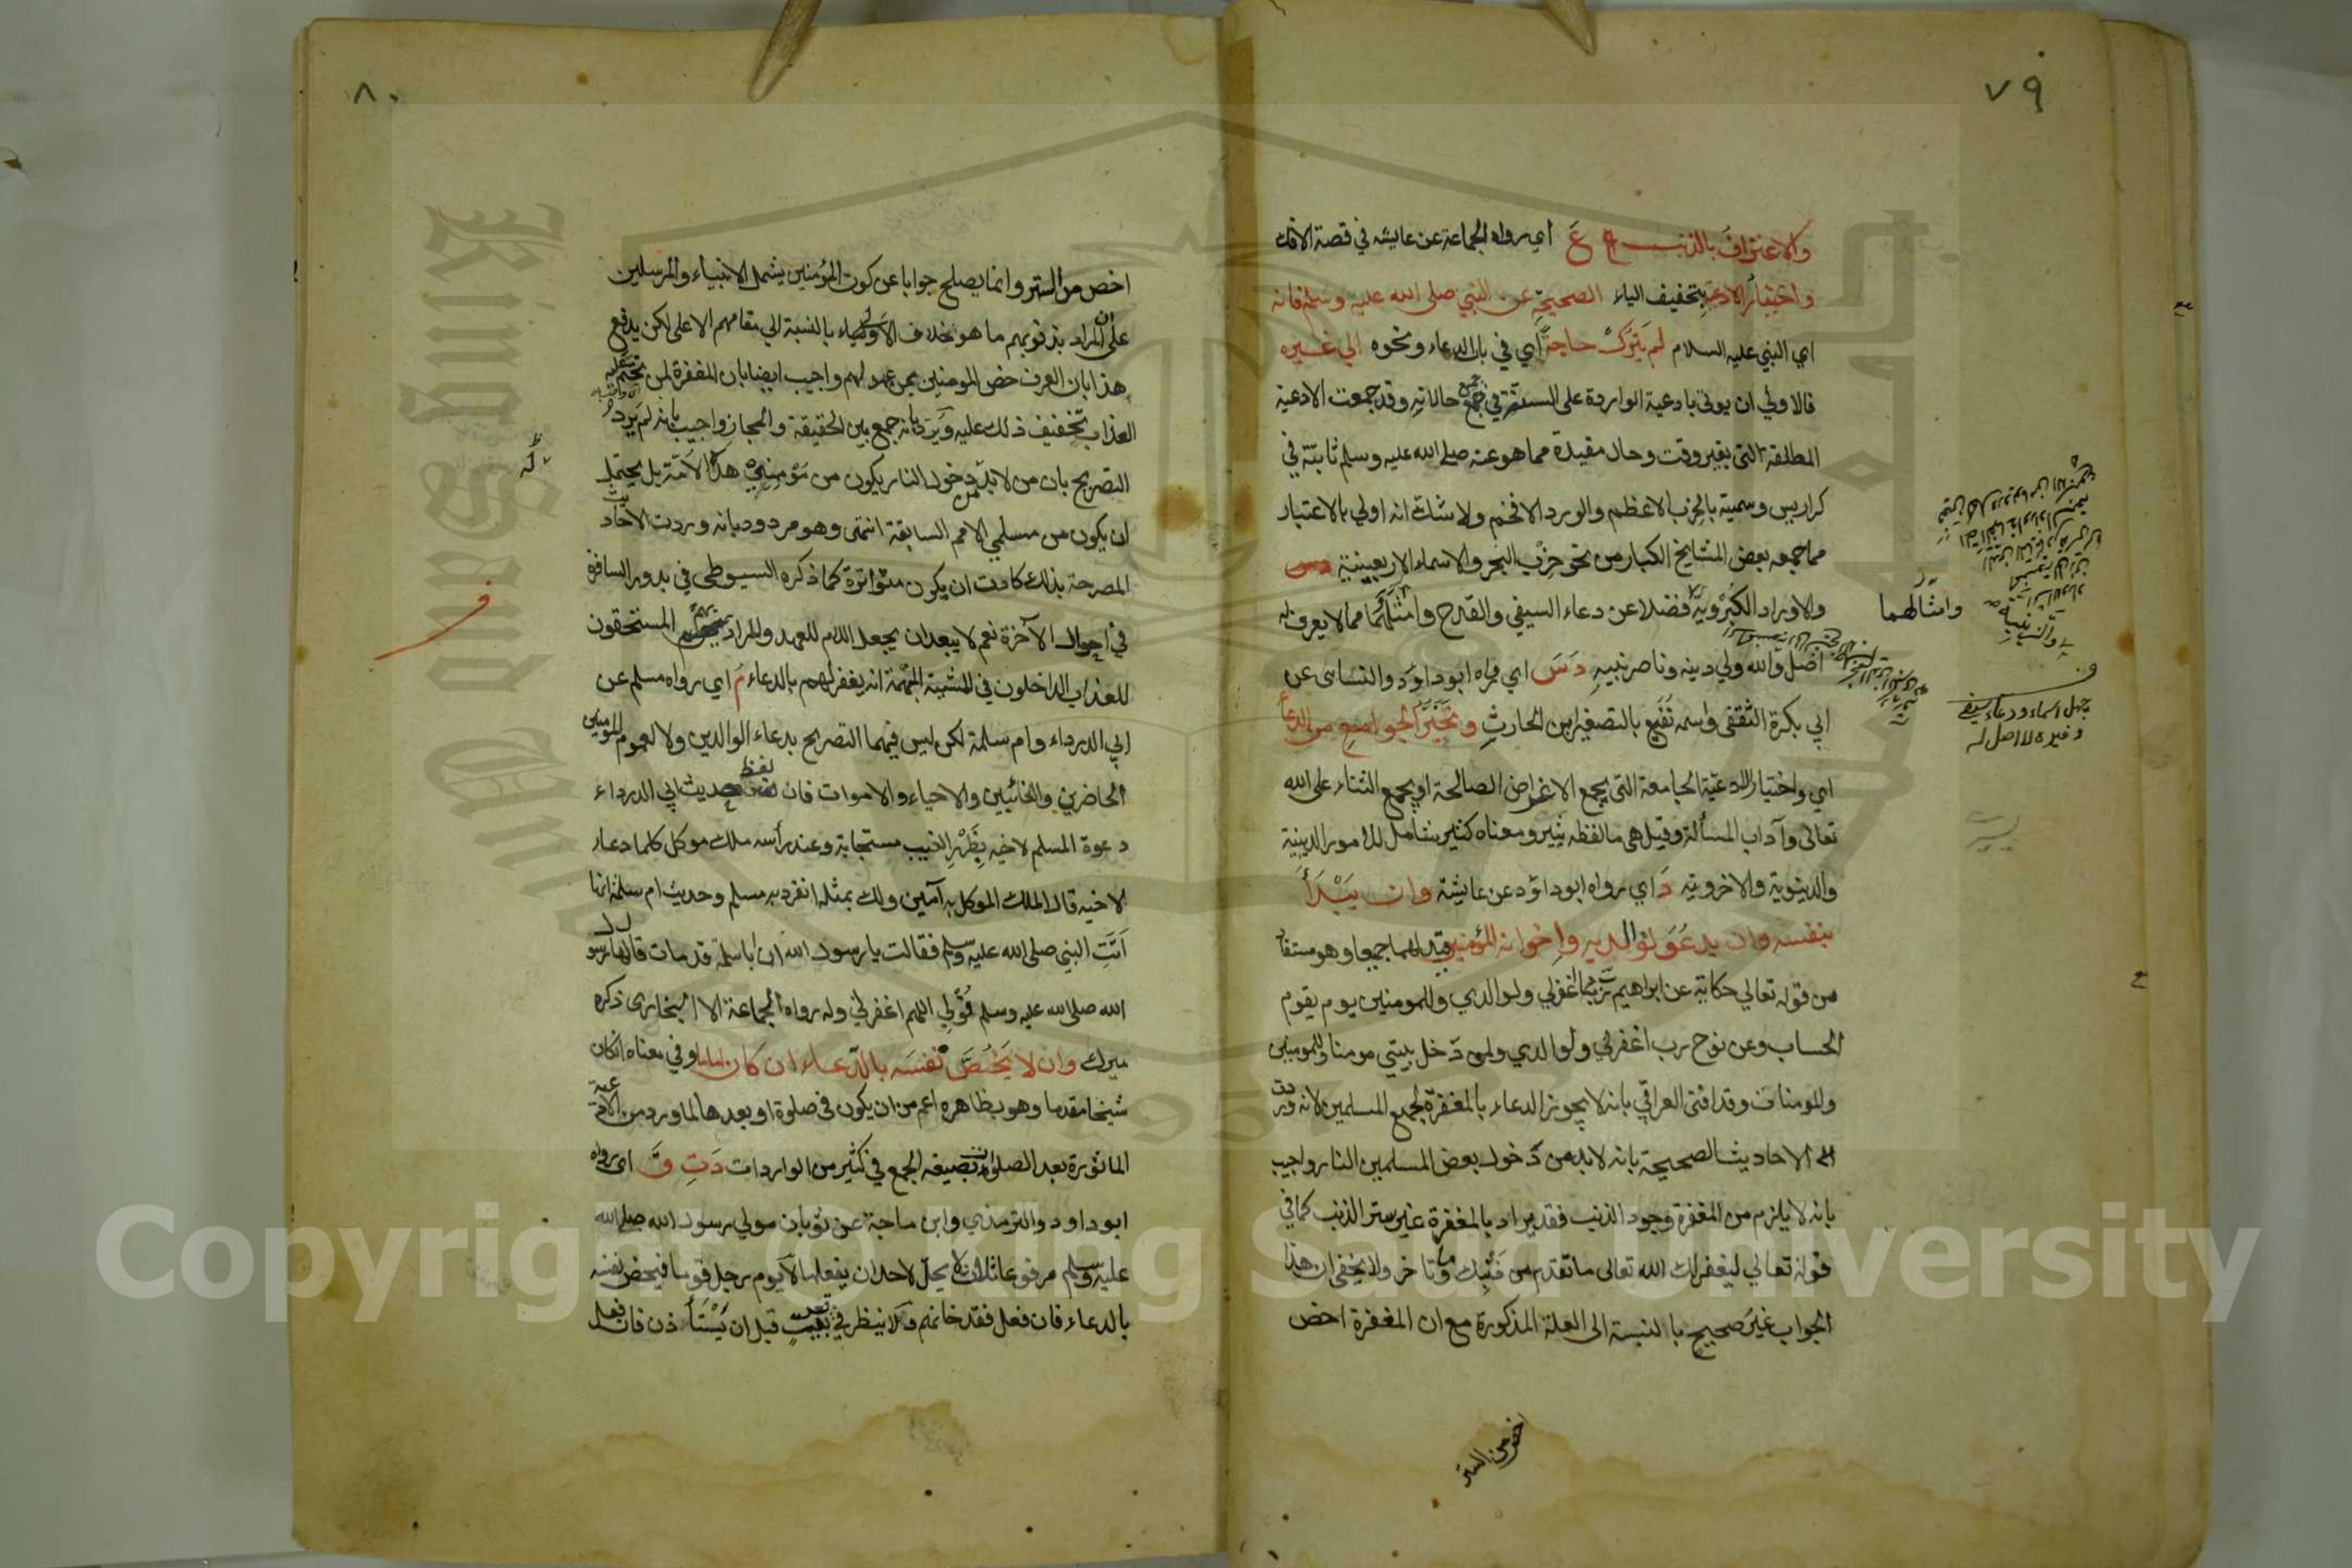 ٧٩
والاعتراف بالذنب ع اي رواه الجماعة عن عايشه في قصة الافك
واختيار الادعية بتخفيف الياء الصحيحة عن النبي صلى الله عليه وسلم فانه
اي النبي عليه السلام لم يترك حاجة اي في باب الدعاء ونحوه الي غيره
فالاولي ان يوتى بادعية الواردة على السنته في جميع حالاته وقد جمعت الادعية
المطلقة التى بغير وقت وحال مقيدة مما هو عنه صلى الله عليه وسلم ثابتة في
كراريس وسميته بالحزب الاعظم والورد الافخم ولا شك انه اولي بالاعتبار
مما جمعه بعض المشايخ الكبار من نحو حزب البحر والاسماء الاربعينية
والاوراد الكبروية فضلا عن دعاء السيفي والقدح وامثالهما مما لا يعرف له
وامثالهما
اصل والله ولي دينه وناصر نبيه دس اي رواه ابو داود والنسائى عن
ابي بكرة الثقفى واسمه نفيع بالتصغير ابن الحارث وتخير الجوامع من الدعاء
اي واختيار الادعية الجامعة التى يجمع الاغراض الصالحة او يجمع الثناء على الله
تعالى وآداب المسألة وقيل هى ما لفظه يسير ومعناه كثير شامل للامور الدينية
والدنيوية والاخروية د اي رواه ابو داؤد عن عايشة وان يبدأ
بنفسه وان يدعو لوالديه واخوانه المؤمنين قيد لهما جميعا وهو مستفاد
من قوله تعالي حكاية عن ابراهيم ربنا اغفرلي ولوالدي وللمومنين يوم يقوم
الحساب وعن نوح رب اغفرلي ولوالدي ولمن دخل بيتي مومنا وللمومنين
وللمومنات وقد افتى العراقي بانه لا يجوز الدعاء بالمغفرة لجميع المسلمين لانه ورد
الاحاديث الصحيحة بانه لابد من دخول بعض المسلمين النار واجيب
بانه لا يلزم من المغفرة وجود الذنب فقد يراد بالمغفرة غير ستر الذنب كما في
قوله تعالي ليغفر لك الله تعالى ما تقدم من ذنبك وما تاخر ولا يخفى ان هذا
الجواب غير صحيح بالنسبة الى العلة المذكورة مع ان المغفرة اخص
اخص من الستر
٨٠
اخص من الستر وانما يصلح جوابا عن كون المؤمنين يشمل الانبياء والمرسلين
على ان المراد بذنوبهم ما هو خلاف الاولى بالنسبة الي مقامهم الاعلى لكن يدفع
هذا بان العرف خص المومنين بمن عهد لهم واجيب ايضا بان المغفرة لمن
العذاب بتخفيف ذلك عليه ويرد بانه جمع بين الحقيقة والمجاز واجيب بانه لم يرد
التصريح بان من لابد من دخول النار يكون من مؤمني هذه الامة بل يحتمل
ان يكون من مسلمي الامم السابقة انتهى وهو مردود بانه وردت الاحاديث
المصرحة بذلك كادت ان يكون متواترة كما ذكره السيوطي في بدور السافرة
في احوال الآخرة نعم لا يبعد ان يجعل اللام للعهد والمراد المستحقون
للعذاب الداخلون في المشية المبهمة انه يغفر لهم بالدعاء م اي رواه مسلم عن
ابي الدرداء وام سلمة لكن ليس فيهما التصريح بدعاء الوالدين ولا لعموم المومنين
الحاضرين والغائبين والاحياء والاموات فان لفظ حديث ابي الدرداء
دعوة المسلم لاخيه بظهر الغيب مستجابة وعند رأسه ملك موكل كلما دعاء
لاخيه قال الملك الموكل به آمين ولك بمثله انفرد به مسلم وحديث ام سلمة انها
اتت النبي صلى الله عليه وسلم فقالت يا رسول الله ان ابا سلمة قد مات قال لها رسول
الله صلى الله عليه وسلم قولي اللهم اغفرلي وله رواه الجماعة الا البخارى ذكره
ميرك وان لا يخص نفسه بالدعاء ان كان اماما وفي معناه ان كان
شيخا مقدما وهو بظاهره اعم من ان يكون فى صلوة او بعدها لما ورد من الادعية
الماثورة بعد الصلوات بصيغه الجمع في كثير من الواردات د ت ق اى رواه
ابو داود والترمذي وابن ماجة عن ثوبان مولي رسول الله صلى الله
عليه وسلم مرفوعا ثلاث لا يحل لاحد ان يفعلها لا يوم رجل قوما فيخص نفسه
بالدعاء فان فعل فقد خانهم ولا ينظر في قعر بيت قبل ان يستأذن فان فعل
Copyright © King Saud University
1957